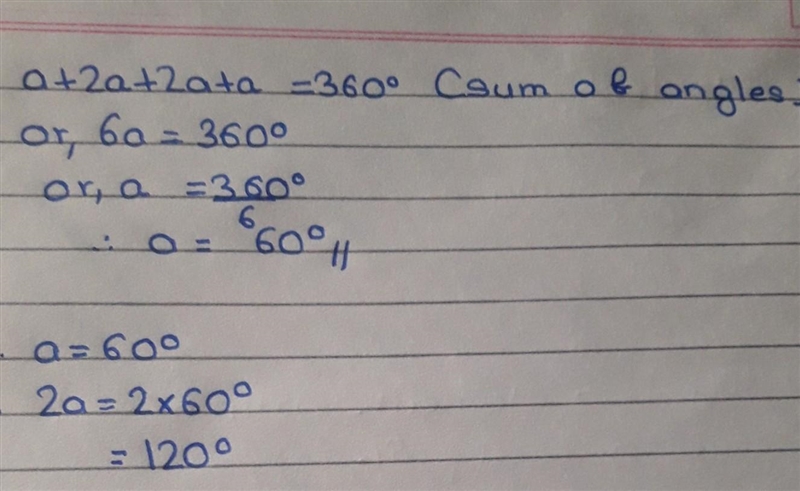 a+2a+2a+a =360° (sum of angles
or, 6a = 360°
or, a = 360°
6
∴ a = 60°//
a = 60°
2a = 2×60°
= 120°